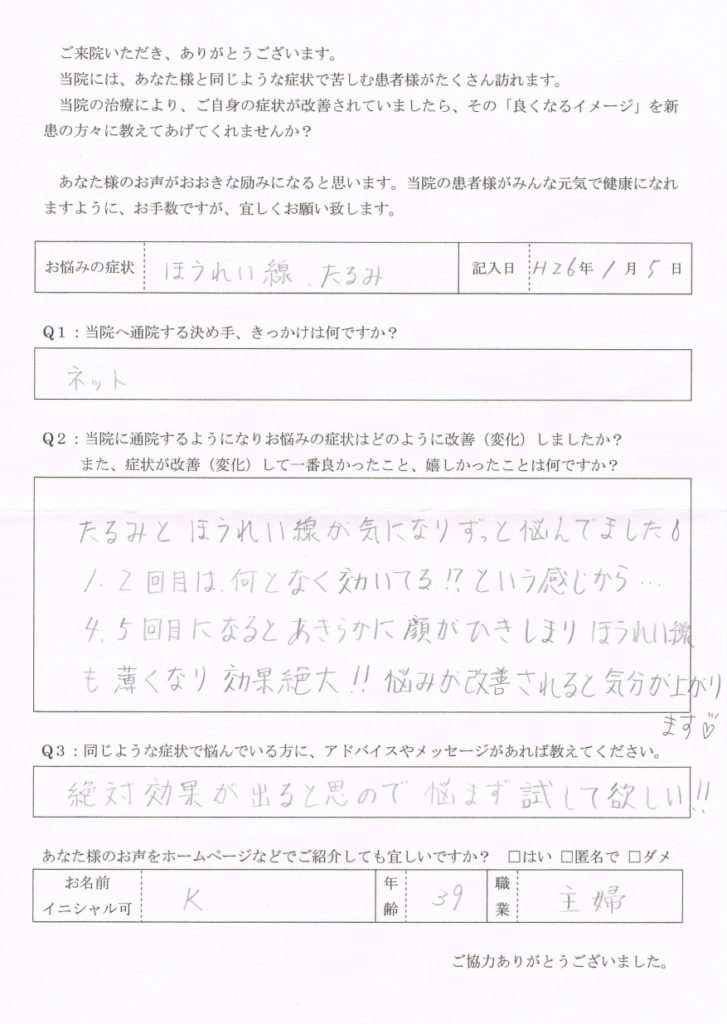 ご来院いただき、ありがとうございます。
当院には、あなた様と同じような症状で苦しむ患者様がたくさん訪れます。
当院の治療により、ご自身の症状が改善されていましたら、その「良くなるイメージ」を新
患の方々に教えてあげてくれませんか？
あなた様のお声がおおきな励みになると思います。当院の患者様がみんな元気で健康になれ
ますように、お手数ですが、宜しくお願い致します。
お悩みの症状 ほうれい線、たるみ 記入日 H26年 1月 5日
Q1：当院へ通院する決め手、きっかけは何ですか？
ネット
Q2：当院に通院するようになりお悩みの症状はどのように改善（変化）しましたか？
また、症状が改善（変化）して一番良かったこと、嬉しかったことは何ですか？
たるみと ほうれい線が気になりずっと悩んでました。
1.2回目は、何となく効いてる!?という感じから…
4、5回目になるとあきらかに顔がひきしまり ほうれい線
も薄くなり 効果絶大!! 悩みが改善されると気分が上がり
ます♡
Q3：同じような症状で悩んでいる方に、アドバイスやメッセージがあれば教えてください。
絶対効果が出ると思ので 悩まず 試して欲しい!!
あなた様のお声をホームページなどでご紹介しても宜しいですか？ □はい □匿名で □ダメ
お名前 イニシャル可 K 年齢 39 職業 主婦
ご協力ありがとうございました。